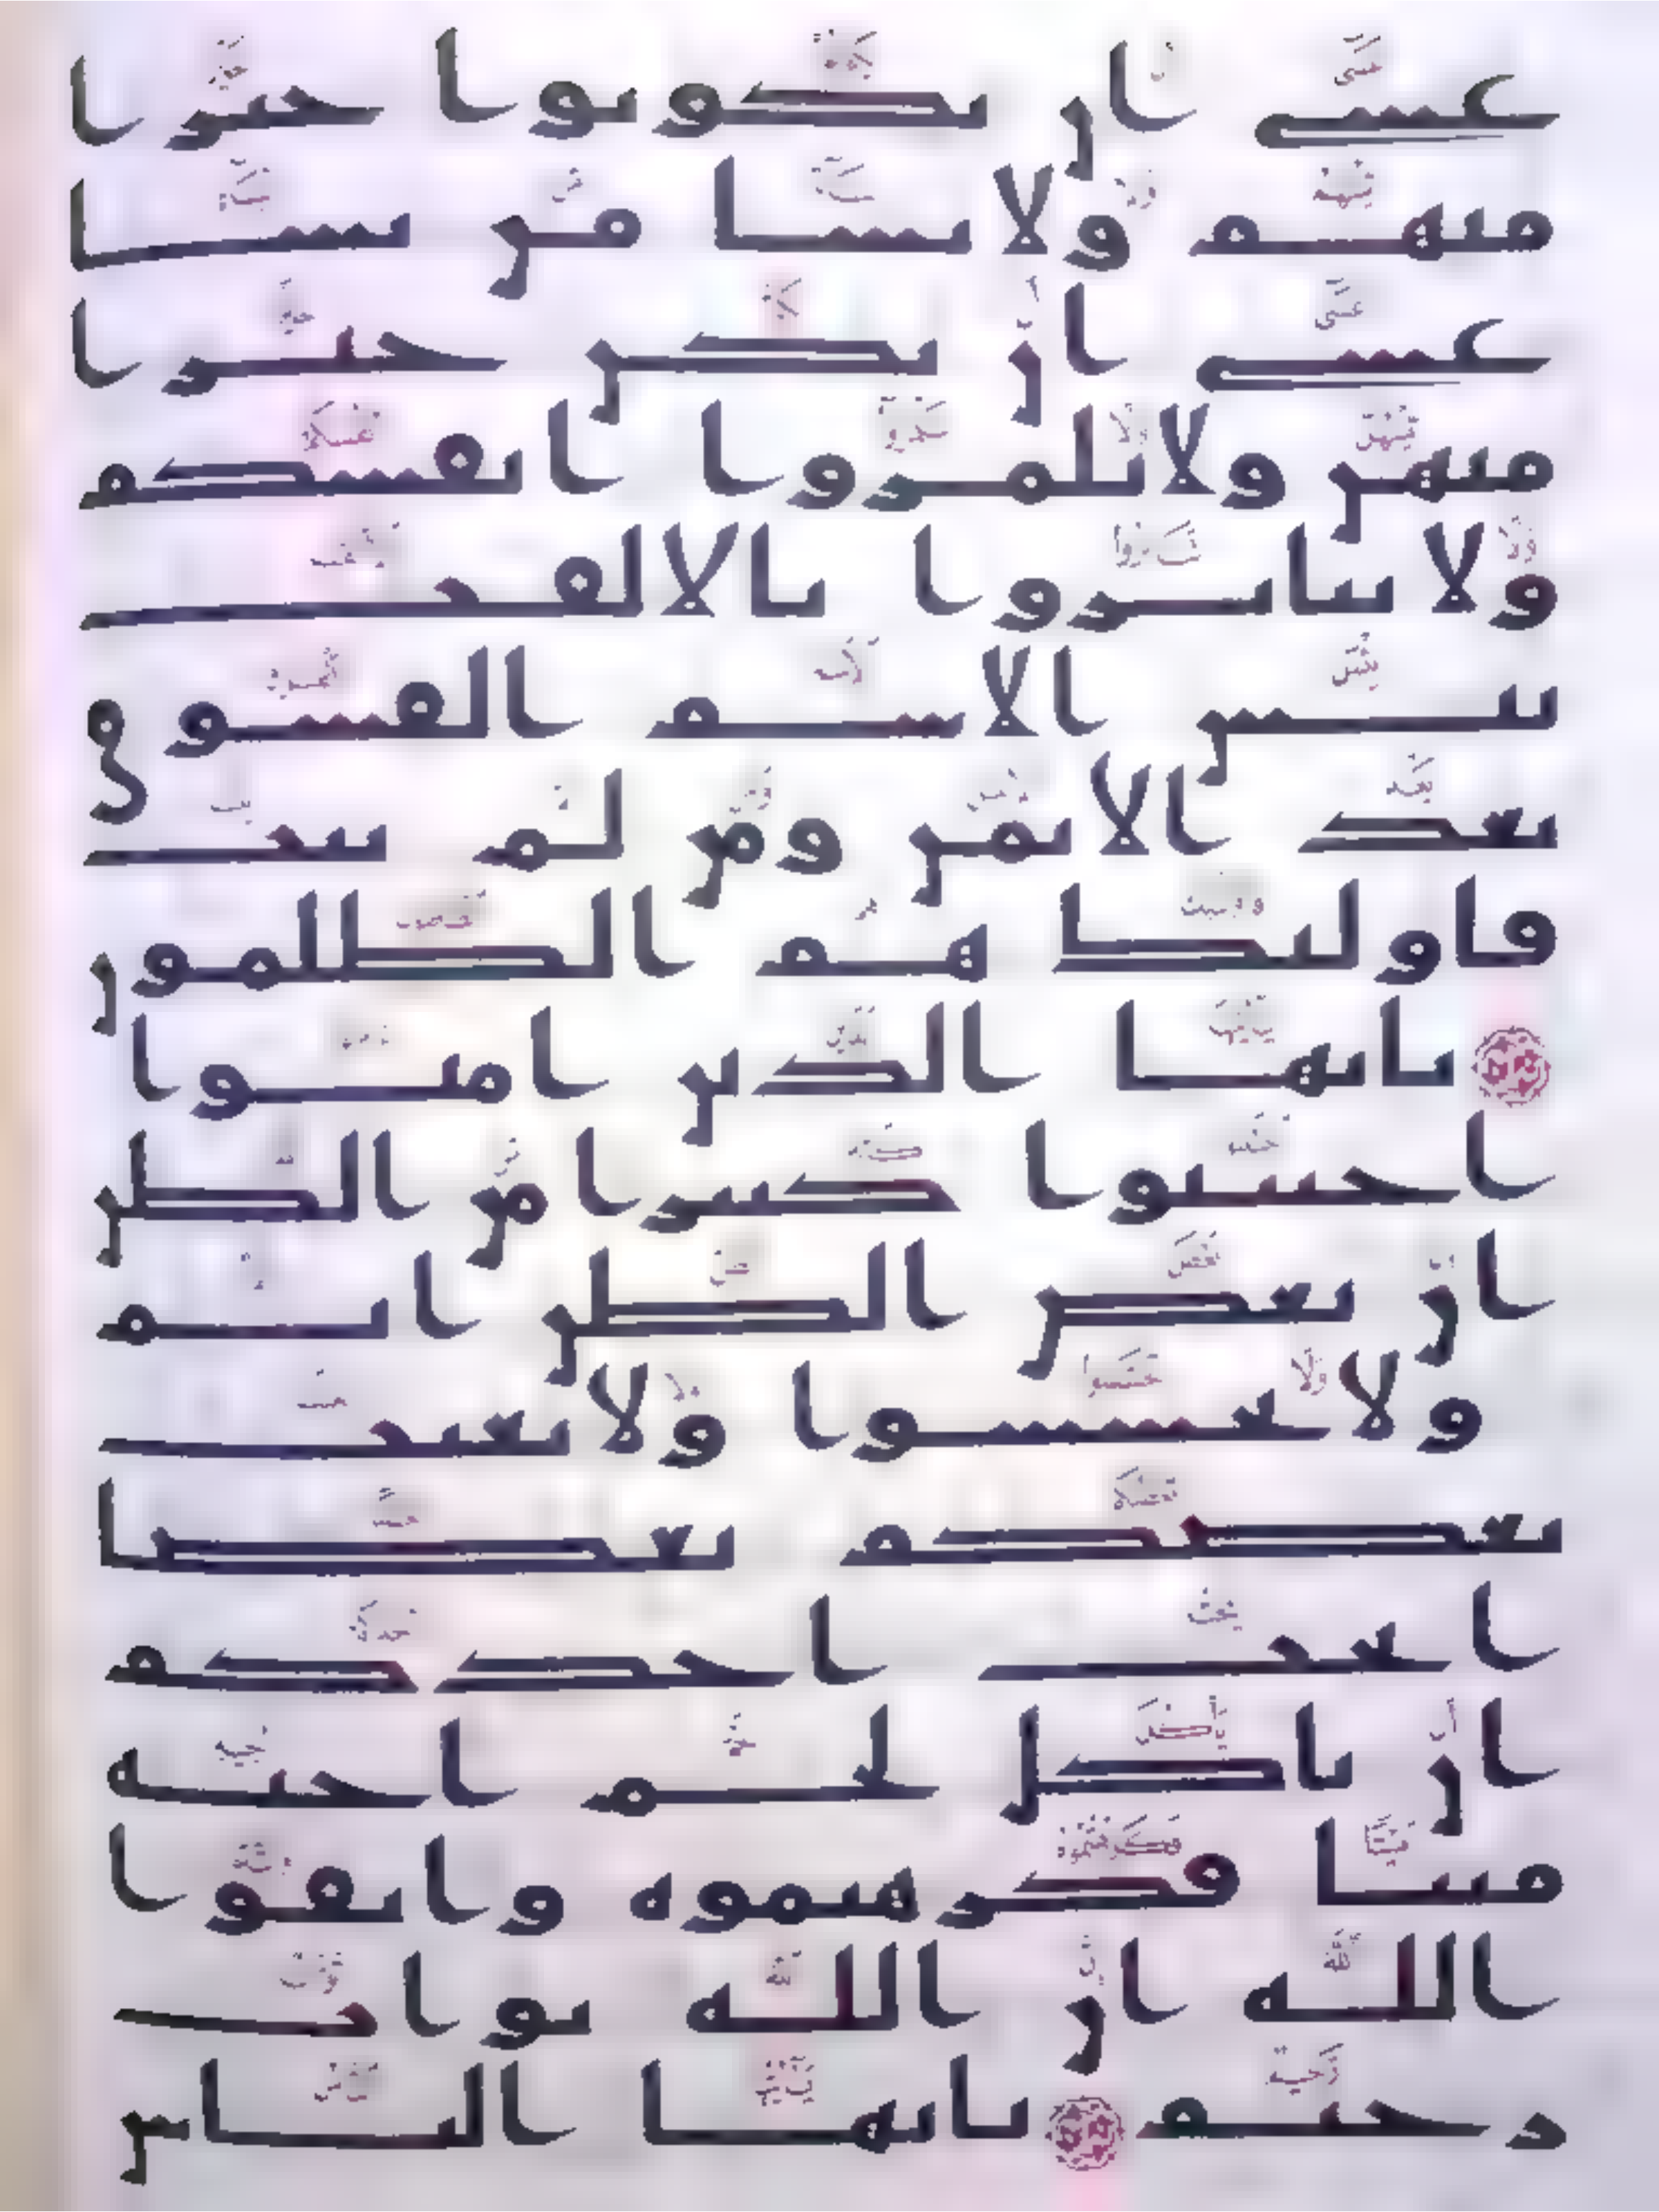 عسى ان يكونوا خيرا
منهم ولا نسا من نسا
عسى ان يكن خيرا
منهن ولا تلمزوا انفسكم
ولا تنابزوا بالالقب
بئس الاسم الفسوق
بعد الايمن ومن لم يتب
فاولئك هم الظلمون
يايها الذين امنوا
اجتنبوا كثيرا من الظن
ان بعض الظن اثم
ولا تجسسوا ولا يغتب
بعضكم بعضا
ايحب احدكم
ان ياكل لحم اخيه
ميتا فكرهتموه واتقوا
الله ان الله تواب
رحيم يايها الناس